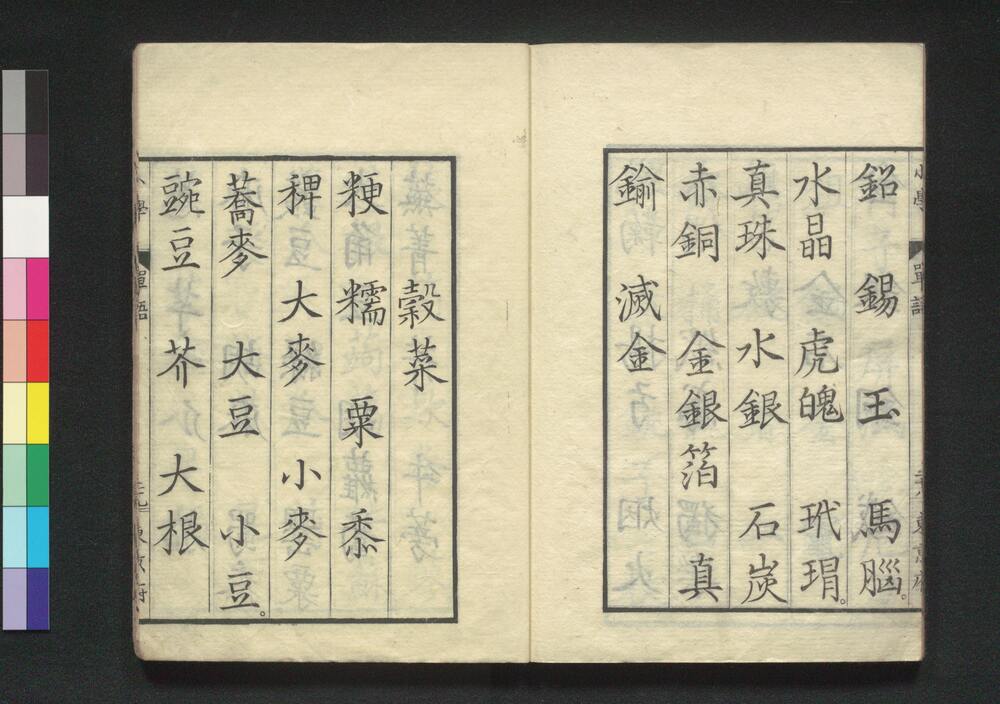 鉛　錫　玉　馬腦。
水晶　虎魄　玳瑁。
真珠　水銀　石炭
赤銅　金銀箔　真
鍮　滅金
穀菜
粳　糯　粟　黍
稗　大麥　小麥
蕎麥　大豆　小豆。
豌豆　芥　大根